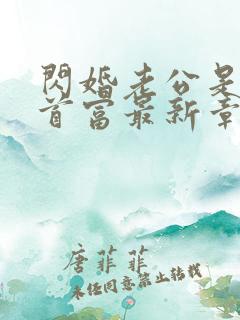 閃婚老公是
首富最新章
唐菲菲
未經同意禁止轉載